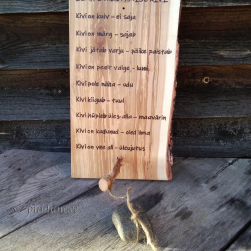 Kivi on kuiv - ei saja
Kivi on märg - sajab
Kivi jätab varju - päike paistab
Kivi on pealt valge - lumi
Kivi pole näha - udu
Kivi kiigub - tuul
Kivi hüpleb üles alla - maavärin
Kivi on kadunud - oled ilma
Kivi on vee all - uleujutus